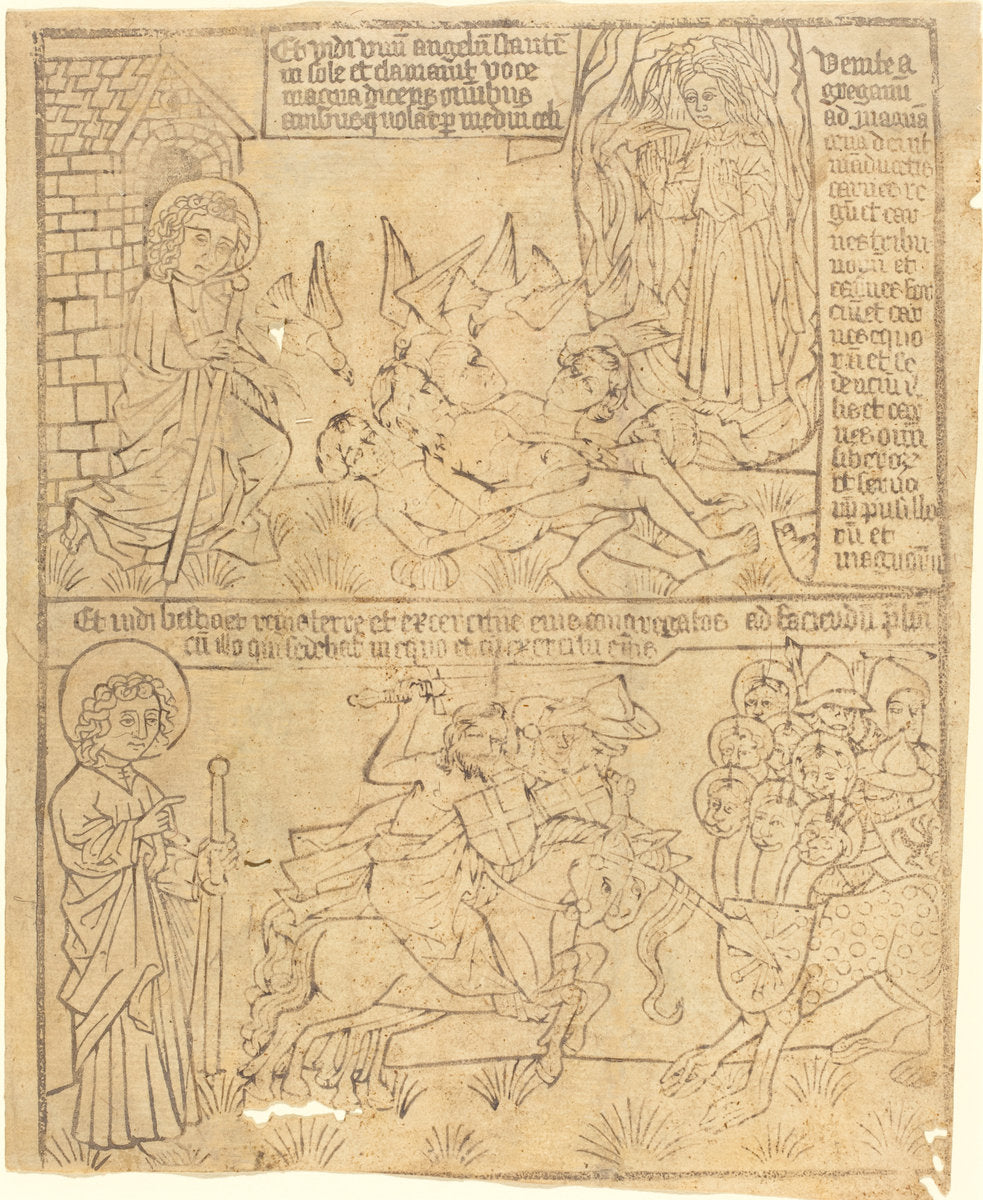 Et vidi vnu̅ angelu̅ stante̅
in sole et clamauit voce
magna dicens omnibus
auibus q̇ uolāt p̲ mediu̅ celi
Venite ̅a
gregami̅
ad magna̅
cena̅ dei ut
maducetis
carnes re
gu̅ et car
nes tribu
noru̅ et
carnes for
ciu̅ et car
nes equo
ru̅ et se
denciu̅ i̅
lis et car
nes om̅
liberoꝝ
et seruo
ru̅ pusillo
ru̅ et
magnoru̅
Et uidi bestia et reges terre et exercitus eius congregatos ad faciendu̅ p̅liu̅
cu̅ illo qui sedebat in equo et cu̅ exercitu eius